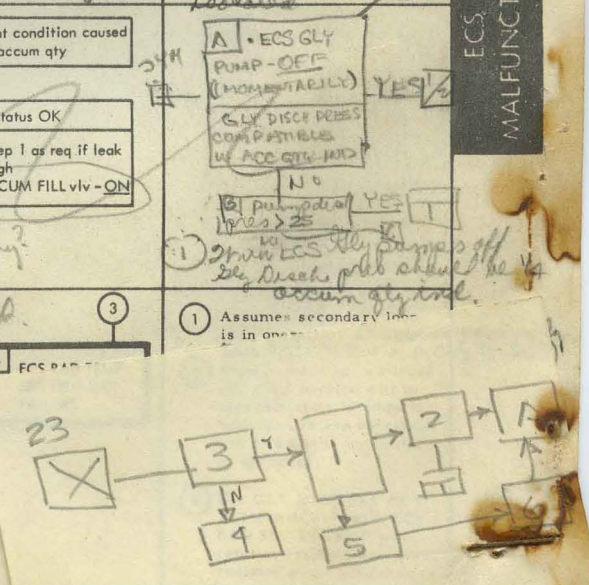 nt condition caused
accum qty
tatus OK
ep 1 as req if leak
gh
CUM FILL vlv - ON
A • ECS GLY
PUMP - OFF
(MOMENTARILY)
YES
GLY DISCH PRESS
COMPATIBLE
W/ ACC QTY IND
NO
pump disch
pres > 25
YES
1
NO
1 Turn ECS Gly pumps off
Gly Disch pres should be
accum qty ind.
ECS
MALFUNCT
3
1 Assumes secondary loop
is in
ECS RAD
23
X
3
Y
1
2
A
N
4
5
6